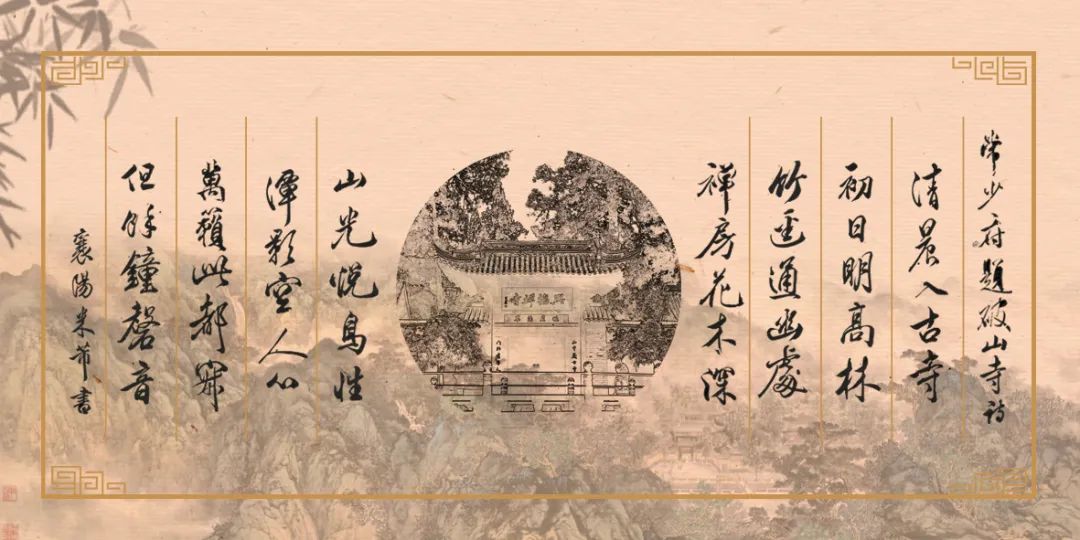 常少府題破山寺詩
清晨入古寺
初日明高林
竹逕通幽處
禪房花木深
興福禪寺
山光悅鳥性
潭影空人心
萬籟此都寂
但餘鐘磬音
襄陽米芾書